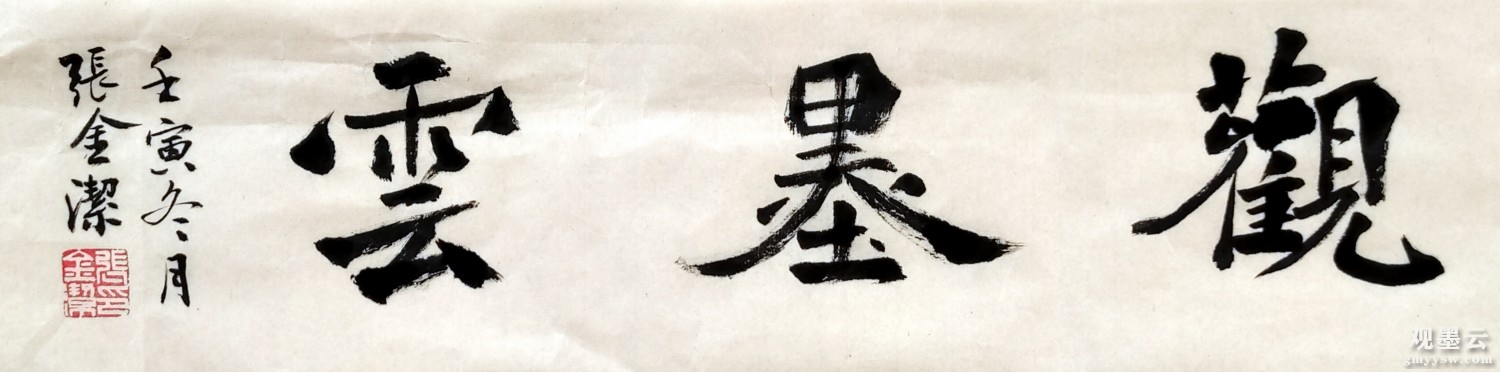 觀墨雲
壬寅冬月
張金潔
观墨云
gmyysw.com